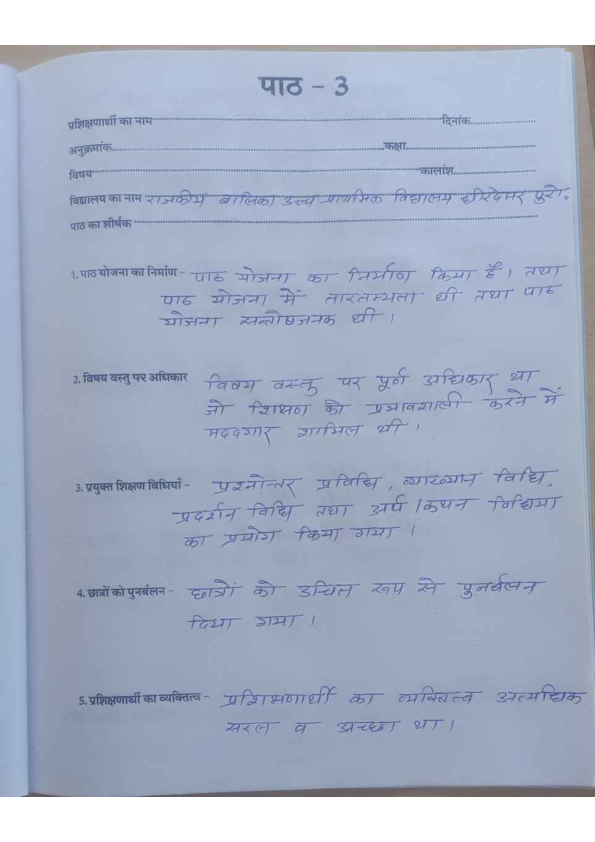 पाठ - 3
प्रशिक्षणार्थी का नाम ........ दिनांक........
अनुक्रमांक........ कक्षा........
विषय ........ कालांश........
विद्यालय का नाम राजकीय बालिका उच्च प्राथमिक विद्यालय
पाठ का शीर्षक ........
1. पाठ योजना का निर्माण - पाठ योजना का निर्माण किया है। तथा
पाठ योजना में तारतम्यता थी तथा पाठ
योजना सन्तोषजनक थी।
2. विषय वस्तु पर अधिकार विषय वस्तु पर पूर्ण अधिकार था
जो शिक्षण को प्रभावशाली करने में
मददगार शामिल थी।
3. प्रयुक्त शिक्षण विधियाँ - प्रश्नोत्तर प्रविधि, व्याख्यान विधि,
प्रदर्शन विधि तथा अर्प /कथन विधिया
का प्रयोग किया गया।
4. छात्रों को पुनर्बलन - छात्रों को उचित रूप से पुनर्बलन
दिया गया।
5. प्रशिक्षणार्थी का व्यक्तित्व - प्रशिक्षणार्थी का व्यक्तित्व अत्यधिक
सरल व अच्छा था।